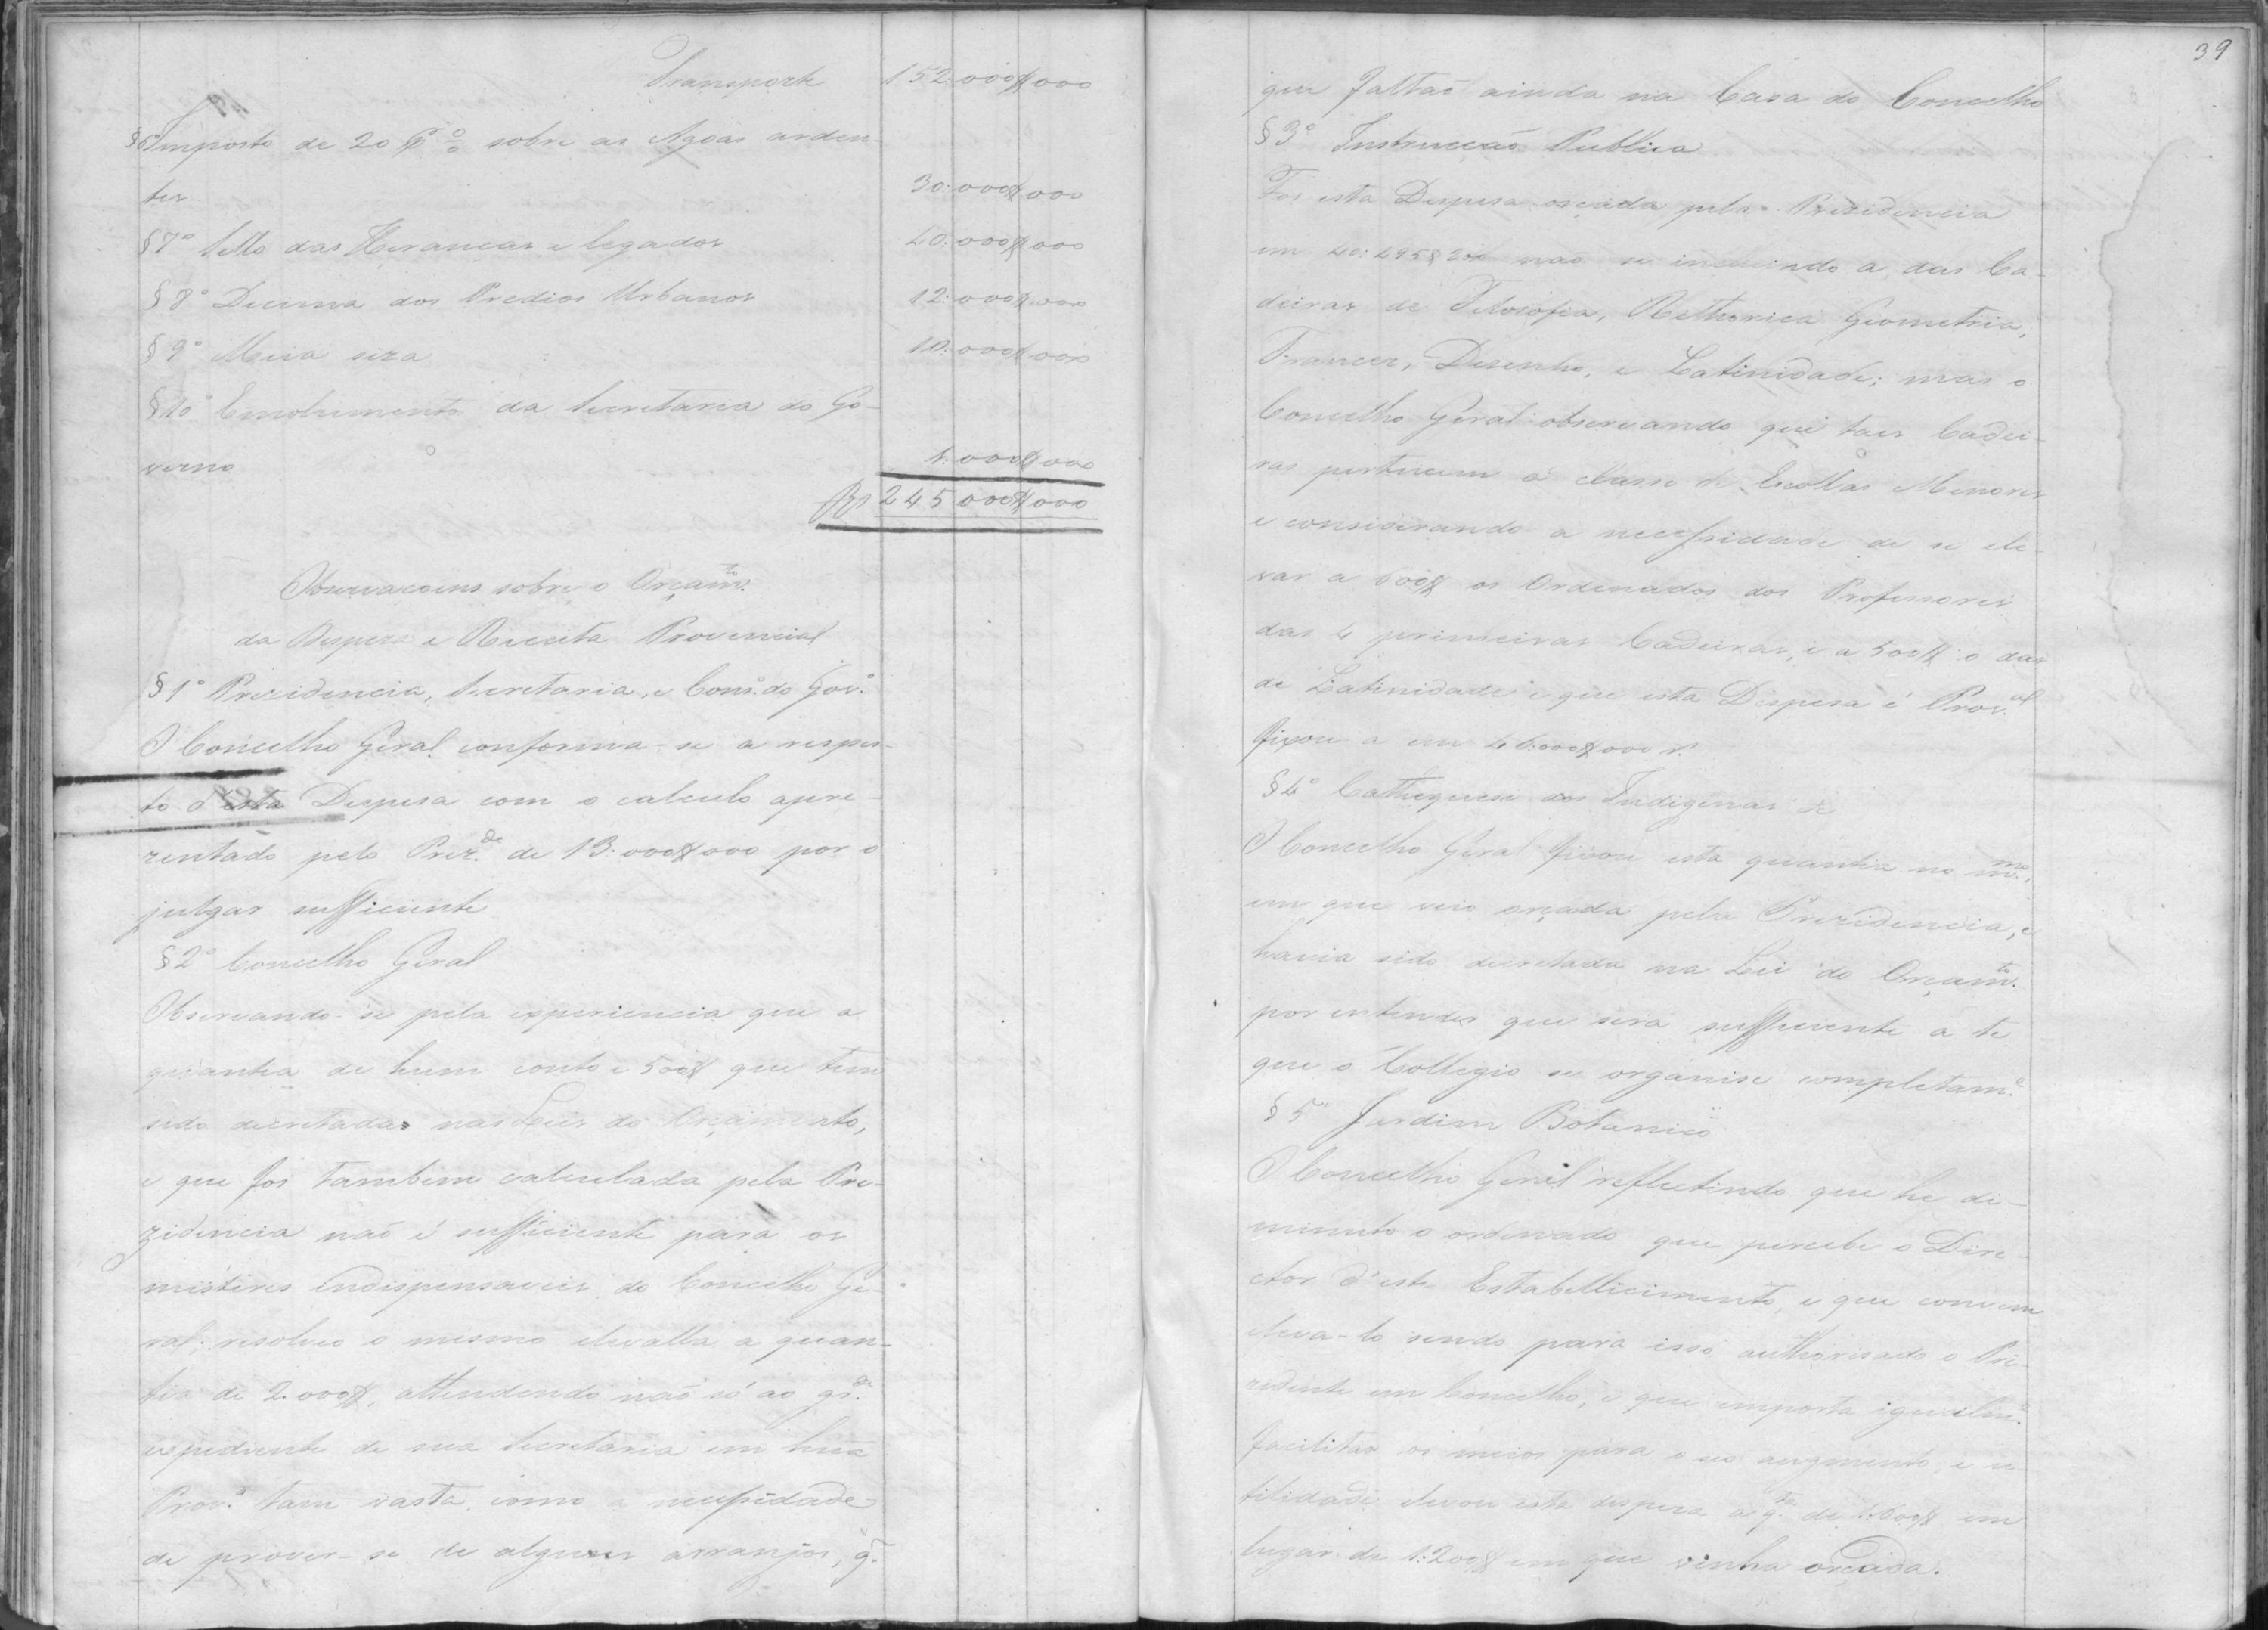 Transporte 152:000$000
§6º Imposto de 20 P% sobre as Agoas arden-
tes 30:000$000
§7º Sello das Heranças e legados 40:000$000
§8º Decima dos Predios Urbanos 12:000$000
§9º Meia siza 10:000$000
§10º Emolumentos da Secretaria do Go-
verno 1:000$000
Rs 245:000$000
Observacoens sobre o Orçam.to
da Despeza e Receita Provincial
§1º Prezidencia, Secretaria, e Cons.º do Gov.º
O Concelho Geral conforma-se a respei-
to d'esta Despesa com o calculo apre-
zentado pelo Prez.de de 13:000$000 por o
julgar sufficiente
§2º Concelho Geral
Observando-se pela experiencia que a
quantia de hum conto e 500$ que tem
sido decretada nas Leis do Orçamento,
e que foi tambem calculada pela Pre-
zidencia naõ é sufficiente para os
misteres indispensaveis do Concelho Ge-
ral; resolveo o mesmo elevalla a quan-
tia de 2:000$, attendendo naõ só ao gr.de
expediente de sua Secretaria em huã
Prov.ª tam vasta, como a necessidade
de prover-se de alguns arranjos, q.
39
que faltaõ ainda na Casa do Concelho
§3º Instrucçaõ Publica
Foi esta Despesa orçada pela Prezidencia
em 40:495$200 naõ se incluindo a das Ca-
deiras de Filosofia, Rethorica Geometria,
Francez, Desenho, e Latinidade; mas o
Concelho Geral observando que taes Cadei-
ras pertencem á classe de Escollas Menores
e considerando a necessidade de se ele-
var a 600$ os Ordenados dos Professores
das 4 primeiras Cadeiras, e a 500$ o das
de Latinidade e que esta Despesa é Prov.al
fixou a em 46:000$000 r.s
§4º Cathequese dos Indigenas &
O Concelho Geral fixou esta quantia no m.mo,
em que veio orçada pela Prezidencia, e
havia sido decretada na Lei do Orçam.to
por entender que será sufficiente a te
que o Collegio se organise completam.e
§5º Jardim Botanico
O Concelho Geral reflectindo que he di-
minuto o ordenado que percebe o Dire-
ctor d'este Estabellicimento, e que convem
eleva-lo sendo para isso authorisado o Pre-
zidente em Concelho, e que importa igualm.e
facilitar os meios para o seo augmento, e u-
tilidade elevou esta despeza a q.ta de 1:600$ em
lugar de 1:200$ em que vinha orçada.